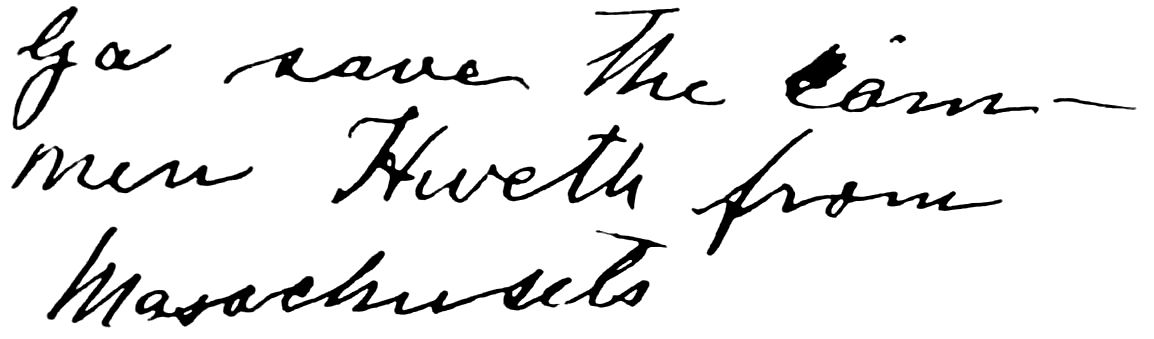 Ga save the com—
men Hweth from
Masachusets